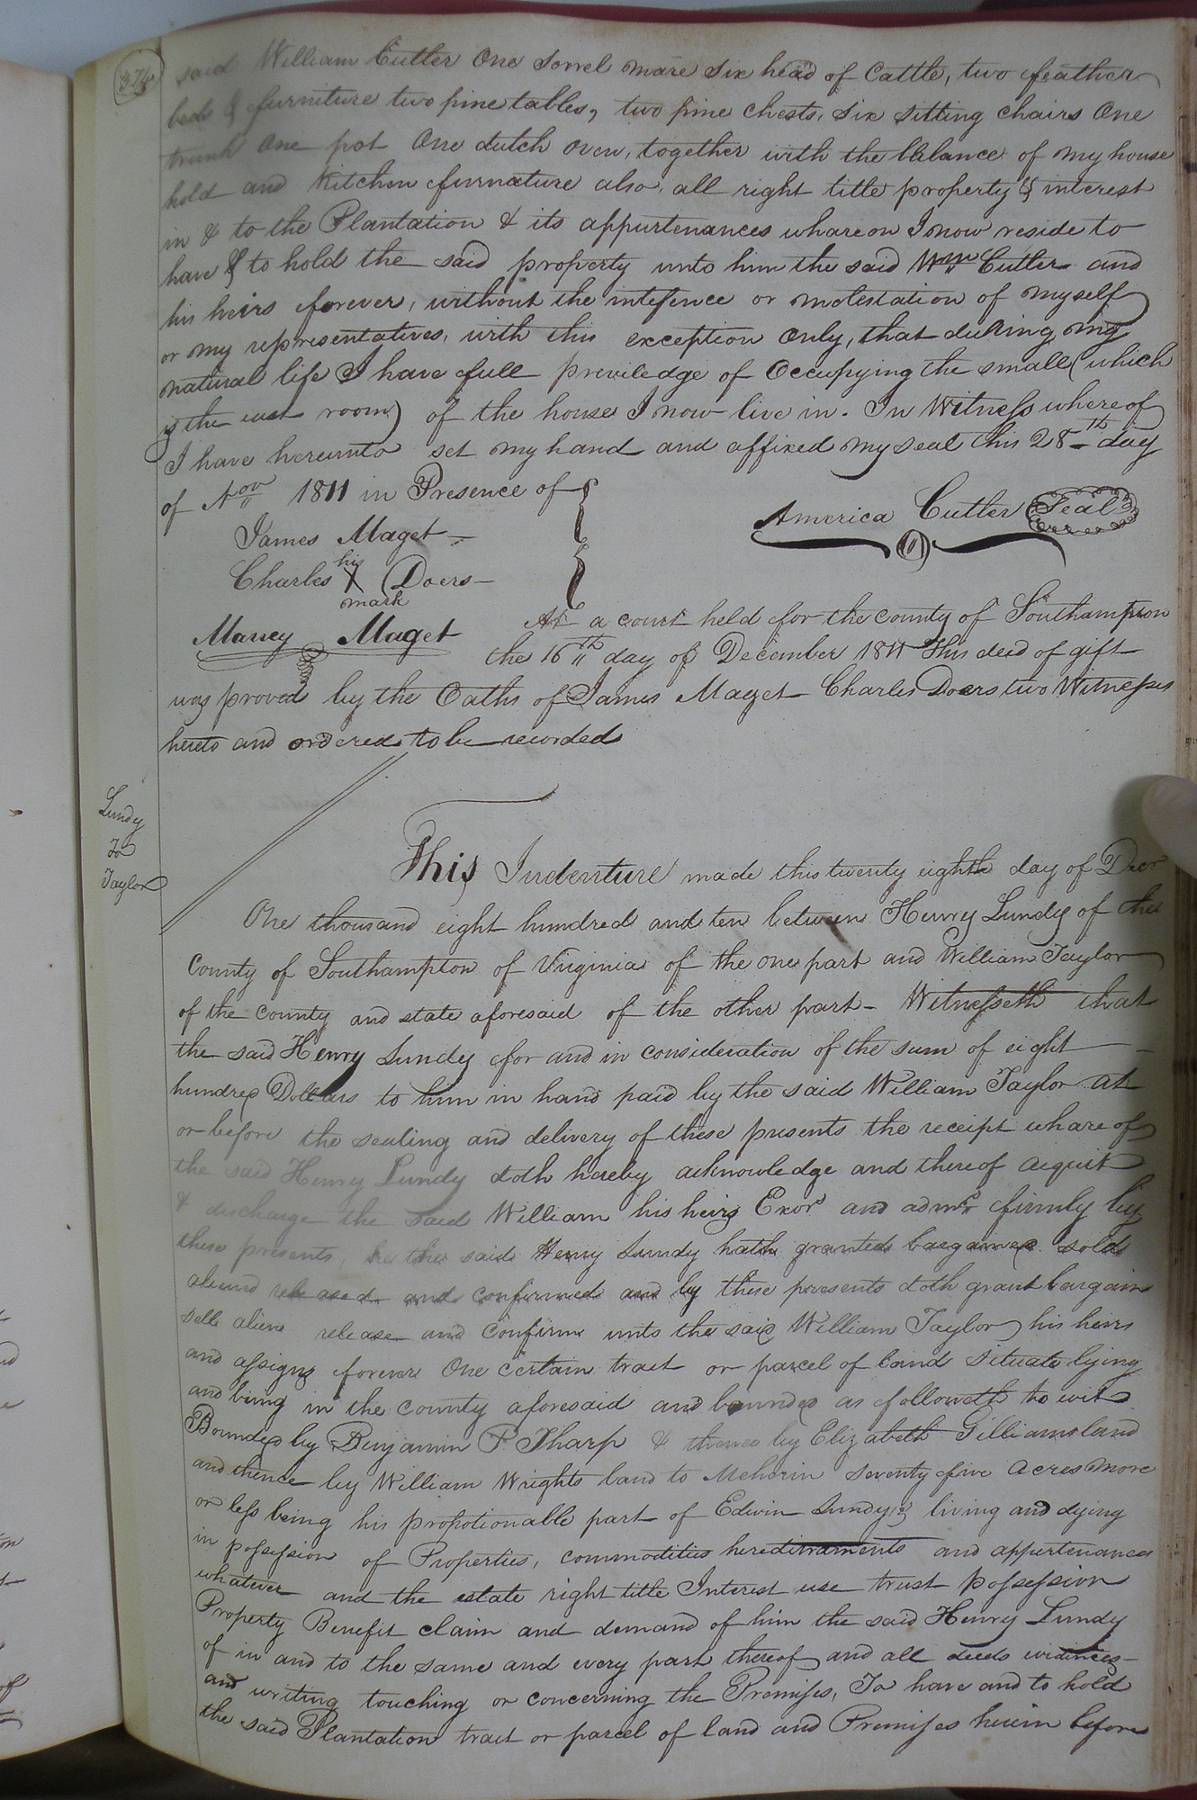 374
said William Cutler One Sorrel mare Six head of Cattle, two feather
beds & furniture two pine tables, two pine Chests, Six Sitting Chairs One
trunk One pot One dutch oven, together with the ballance of my house
hold and Kitchen furnature also all right title property & interest
in & to the Plantation & its appurtenances whareon I now reside to
have & to hold the said property unto him the said Wm Cutler and
his heirs forever, without the intefence or molestation of myself
or my representatives, with this exception Only, that during my
natural life I have full previledge of Occupying the small (which
is the east room) of the house I now live in. In Witness whereof
I have hereunto set my hand and affixed my seal this 28th day
of Nov 1811 in Presence of
James Maget
Charles his X mark Doers
Mancy Maget
America Cutler Seal
At a court held for the county of Southampton
the 16th day of December 1811 This deed of gift
was proved by the Oaths of James Maget Charles Doers two Witnesses
hereto and ordered to be recorded
Lundy
To
Taylor
This Indenture made this twenty eighth day of Decr
One thousand eight hundred and ten between Henry Lundy of the
County of Southampton of Virginia of the one part and William Taylor
of the County and state aforesaid of the other part - Witnesseth that
the said Henry Lundy for and in consideration of the sum of eight
hundred Dollars to him in hand paid by the said William Taylor at
or before the sealing and delivery of these presents the receipt whareof
the said Henry Lundy doth hereby acknowledge and thereof acquit
& discharge the said William his heirs Exors and admrs firmly by
these presents, he the said Henry Lundy hath granted bargained sold
aliend released and confirmed and by these presents doth grant bargain
sell alien release and Confirm unto the said William Taylor his heirs
and assigns forever One Certain tract or parcel of land situate lying
and being in the County aforesaid and bounded as followeth to wit
Bounded by Benjamin P Tharp & thence by Elizabeth Gilliams land
and thence by William Wrights land to Meherin seventy five acres more
or less being his propotionable part of Edwin Lundys living and dying
in possession of Properties, commodities heredimaments and appurtenances
whatever and the estate right title Interest use trust possession
Property Benefit claim and demand of him the said Henry Lundy
of in and to the same and every part thereof and all deeds
and writing touching or concerning the Premises, To have and to hold
the said Plantation tract or parcel of land and Premises herein before